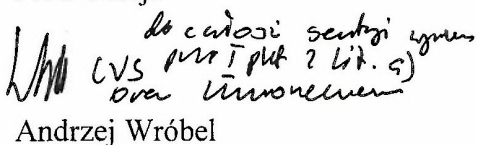 do całości sentencji wyroku
(VS pkt I pkt 2 lit. a)
oraz uzasadnienia
Andrzej Wróbel